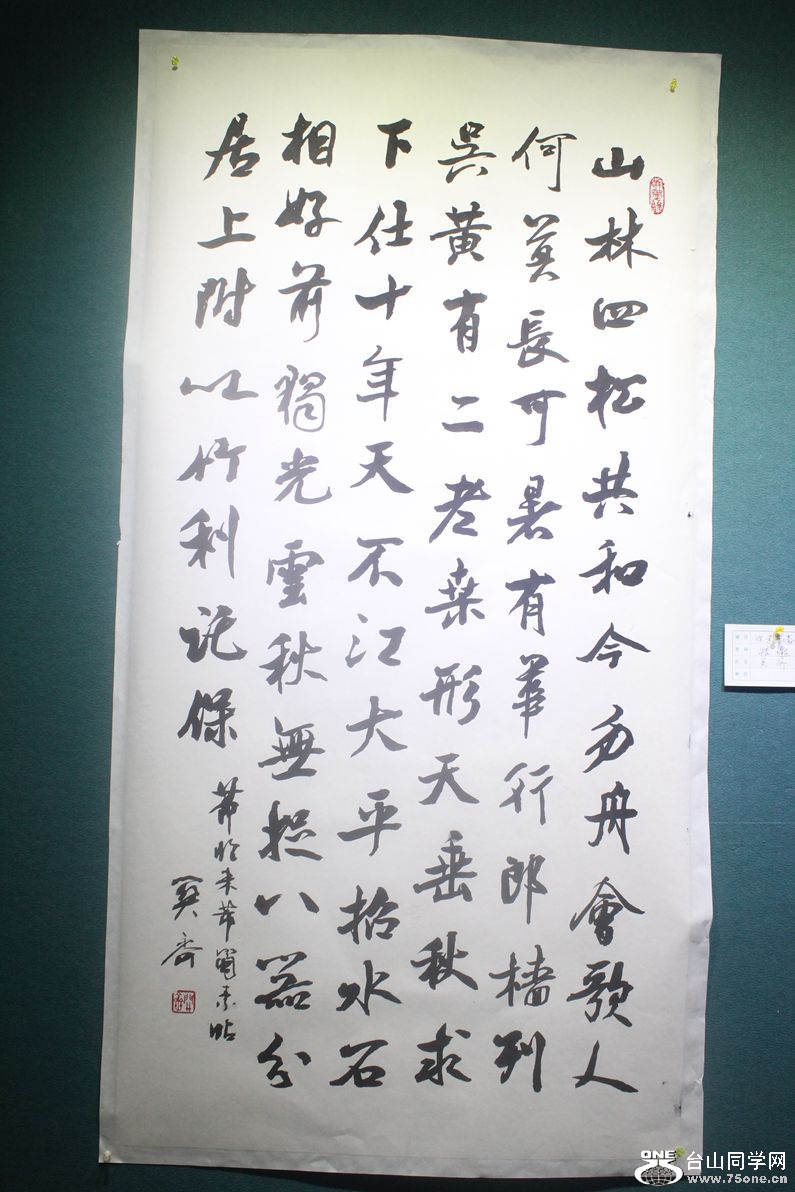 山林四松共和今勿舟會歌人
何莫長可暑有華行郎檣列
吳黃有二老桑形天垂秋求
下仕十年天不江大平招水石
相好前獨光雲秋無挹八器分
居上附以竹利記保
節臨米芾蜀素帖
台山同学网
www.75one.cn
ONE